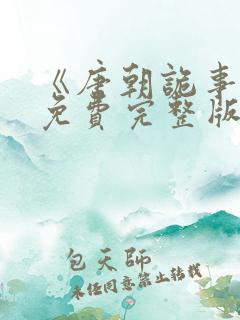 《唐朝詭事
免費完整版
包天師
未经同意禁止转载